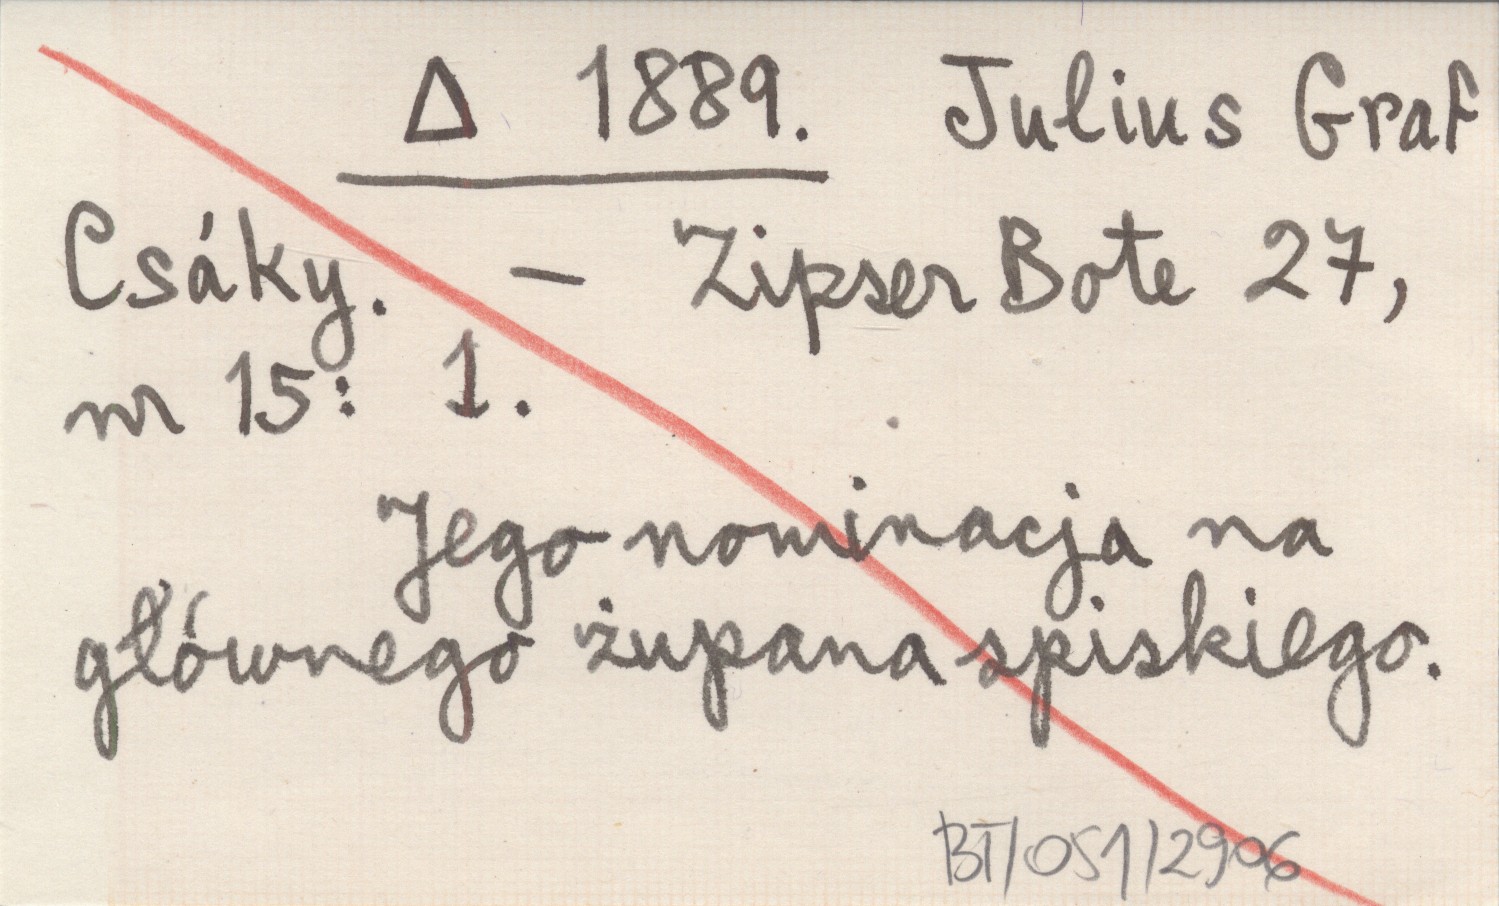 Δ 1889. Julius Graf
Csáky. – Zipser Bote 27,
nr 15: 1.
Jego nominacja na
głównego żupana spiskiego.
BT/051/2906